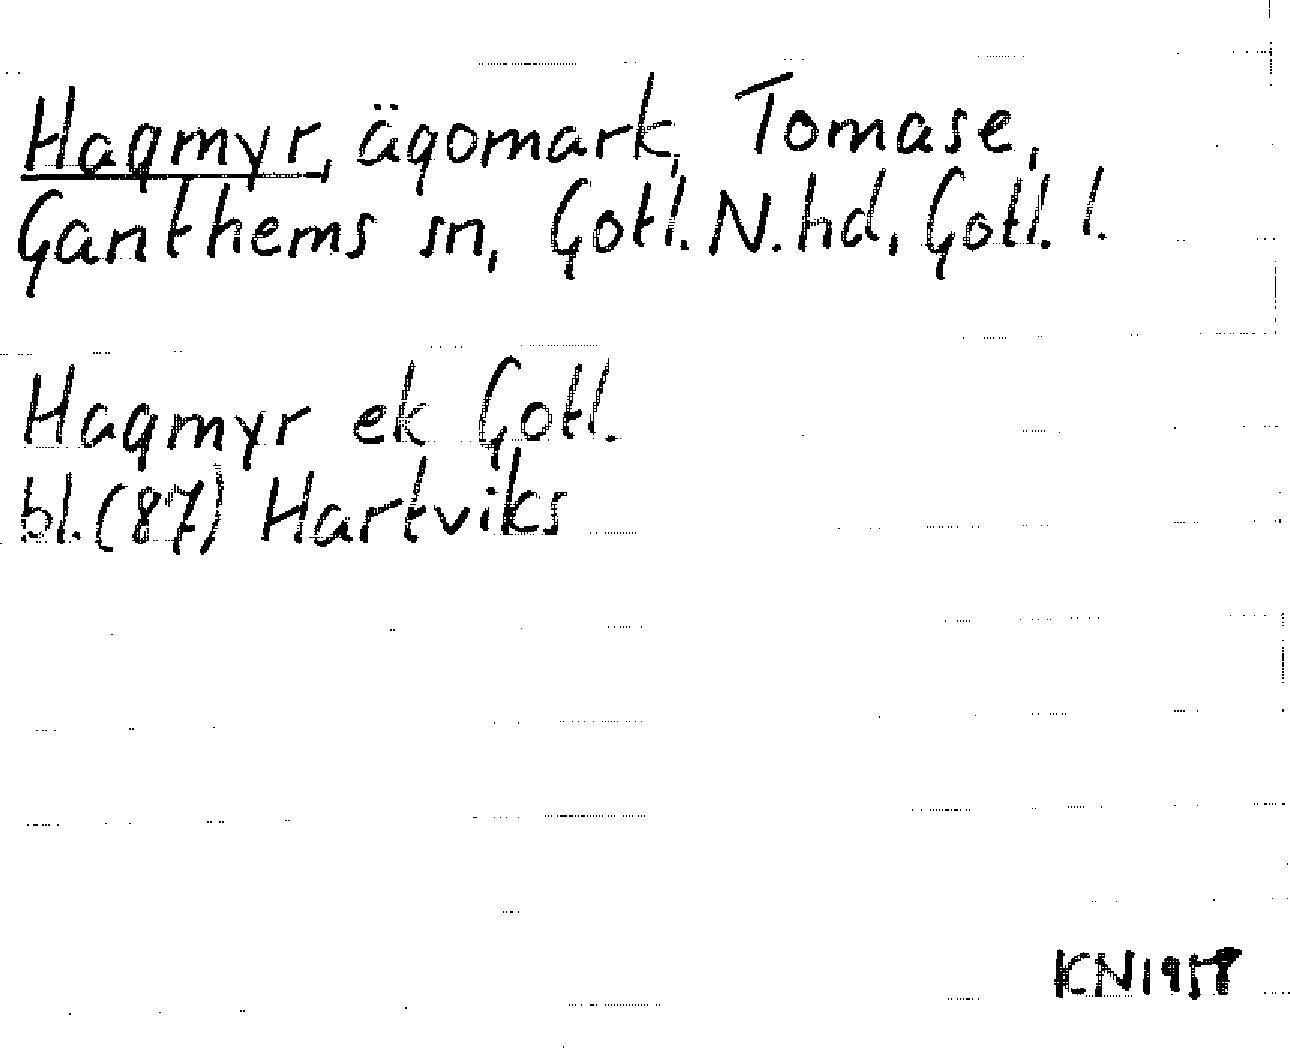 Hagmyr, ägomark, Tomase,
Ganthems sn, Gotl. N. hd, Gotl. l.
Hagmyr ek Gotl.
bl. (87) Hartviks